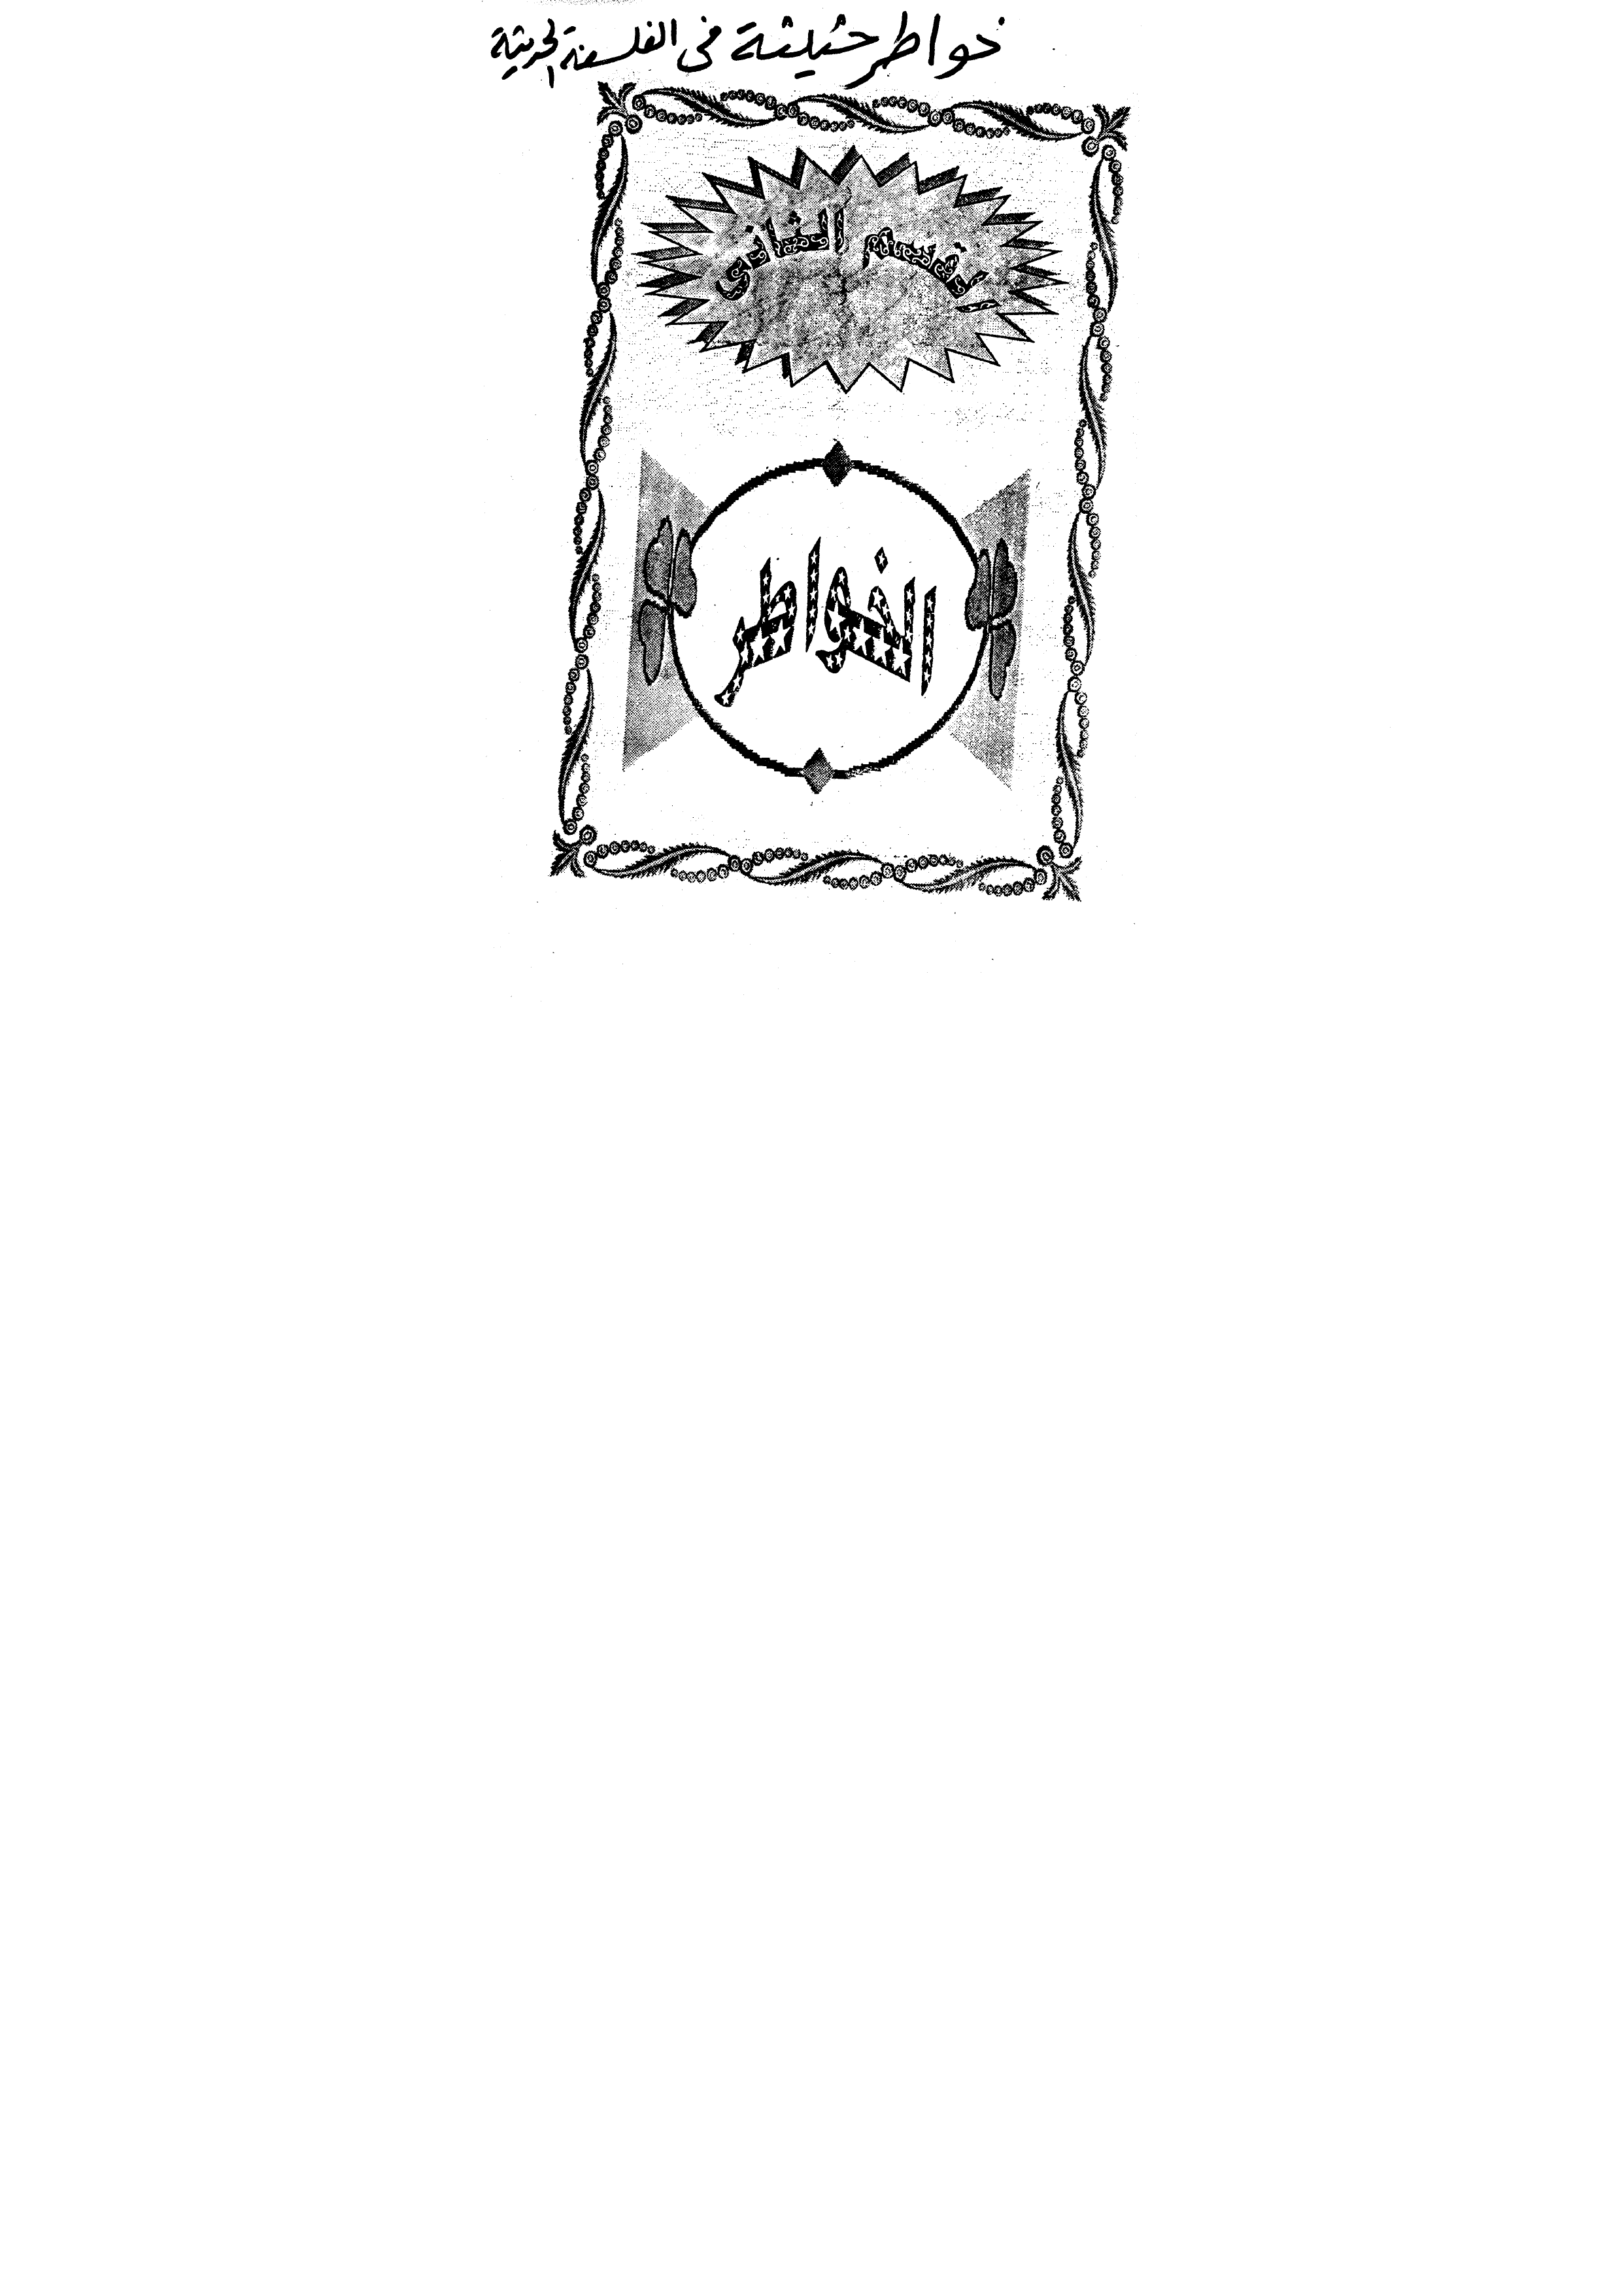 خواطر حثيثة في الفلسفة الحديثة
القسم الثاني
الخواطر